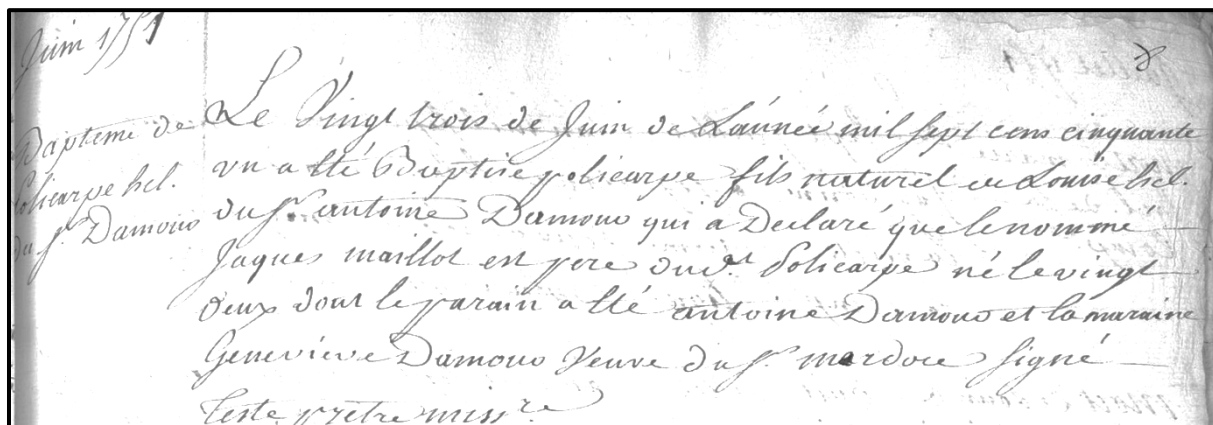 Juin 1751
8
Bapteme de
policarpe hcl.
du sr. Damour
Le Vingt trois de Juin de L'année mil sept cens cinquante
vn a été Baptise policarpe fils naturel de Louise hcl.
du sr. antoine Damour qui a Declaré que le nommé
Jaques maillot est pere dudt. Policarpe né le vingt
deux dont le parain a été antoine Damour et la maraine
Geneviève Damour Veuve du sr. mardoce signé
Teste prêtre missre